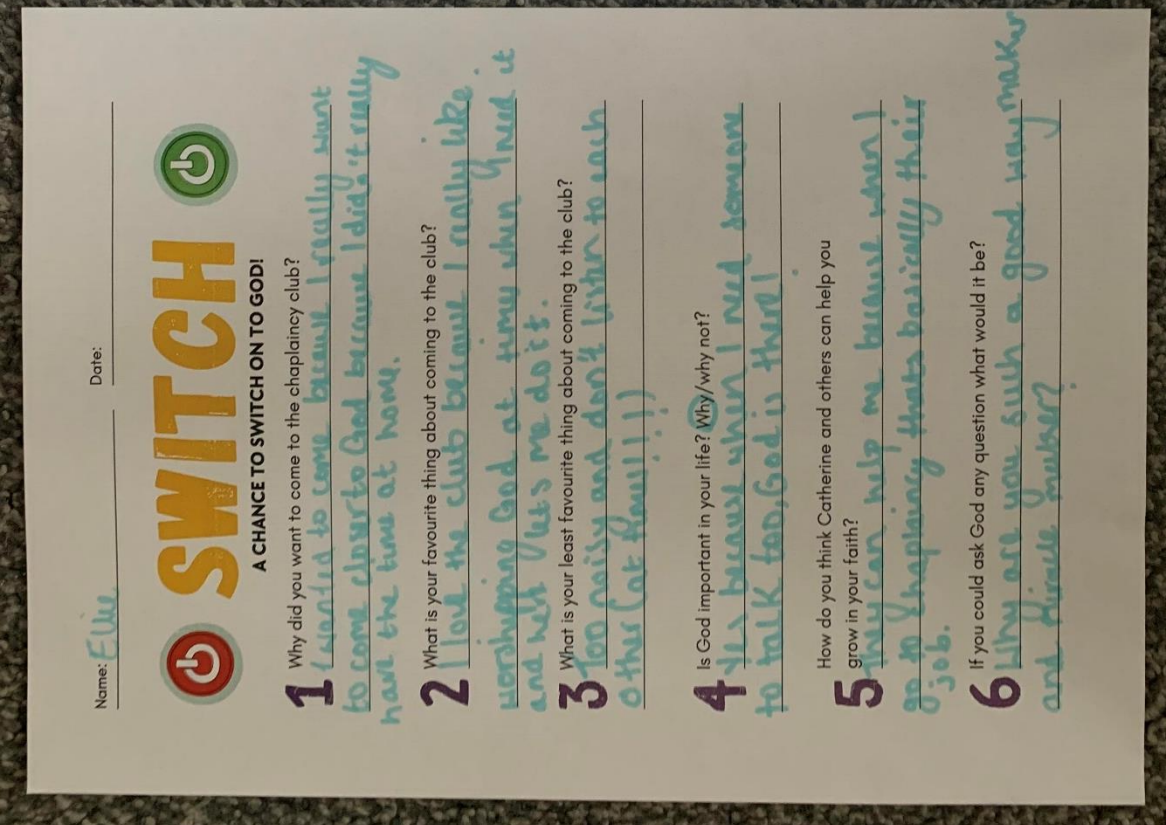 Name: Ellie
Date:
SWITCH
A CHANCE TO SWITCH ON TO GOD!
1 Why did you want to come to the chaplaincy club?
I want to come because I really want
to come closer to God because I didn't really
have the time at home.
2 What is your favourite thing about coming to the club?
I love the club because I really like
worshipping God at times when I need it
and helf lets me do it.
3 What is your least favourite thing about coming to the club?
Too noisy and don't listen to each
other (at all!!!)
4 Is God important in your life? Why/why not?
Yes because when I need someone
to talk too, God is there!
How do you think Catherine and others can help you
5 grow in your faith?
they can help me because when I
go to chaplaincy thats basically their
job.
6 If you could ask God any question what would it be?
Why are you such a good way maker
and miracle maker?